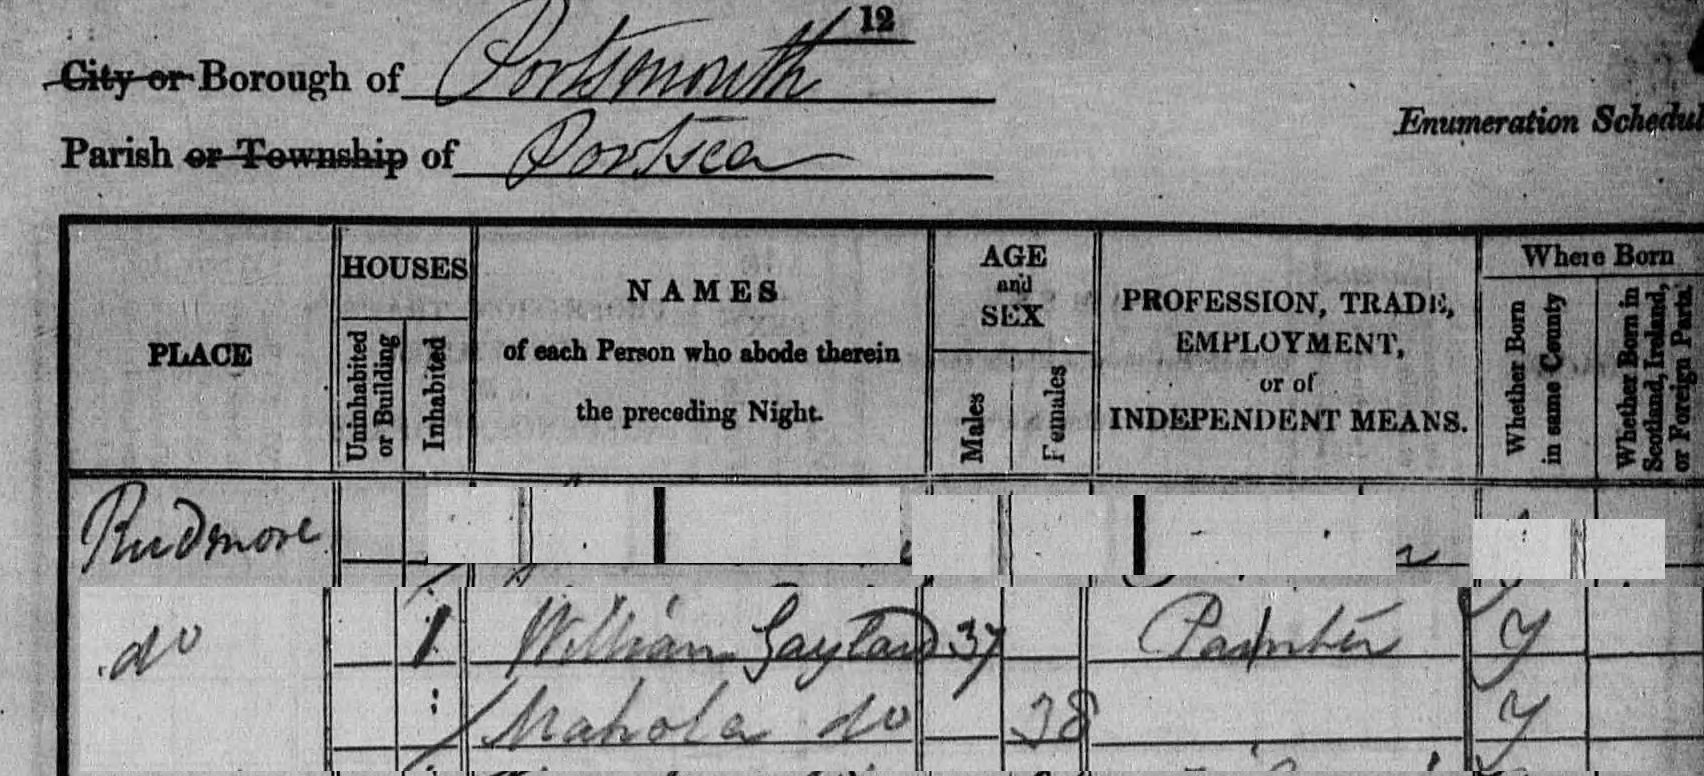 12
City or Borough of Portsmouth
Parish or Township of Portsea
Enumeration Schedul
PLACE
HOUSES
Uninhabited or Building
Inhabited
NAMES
of each Person who abode therein
the preceding Night.
AGE
and
SEX
Males
Females
PROFESSION, TRADE,
EMPLOYMENT,
or of
INDEPENDENT MEANS.
Where Born
Whether Born in same County
Whether Born in Scotland, Ireland, or Foreign Parts.
Rudmore
do 1 William Gaylard 37 Painter Y
Mahala do 38 Y